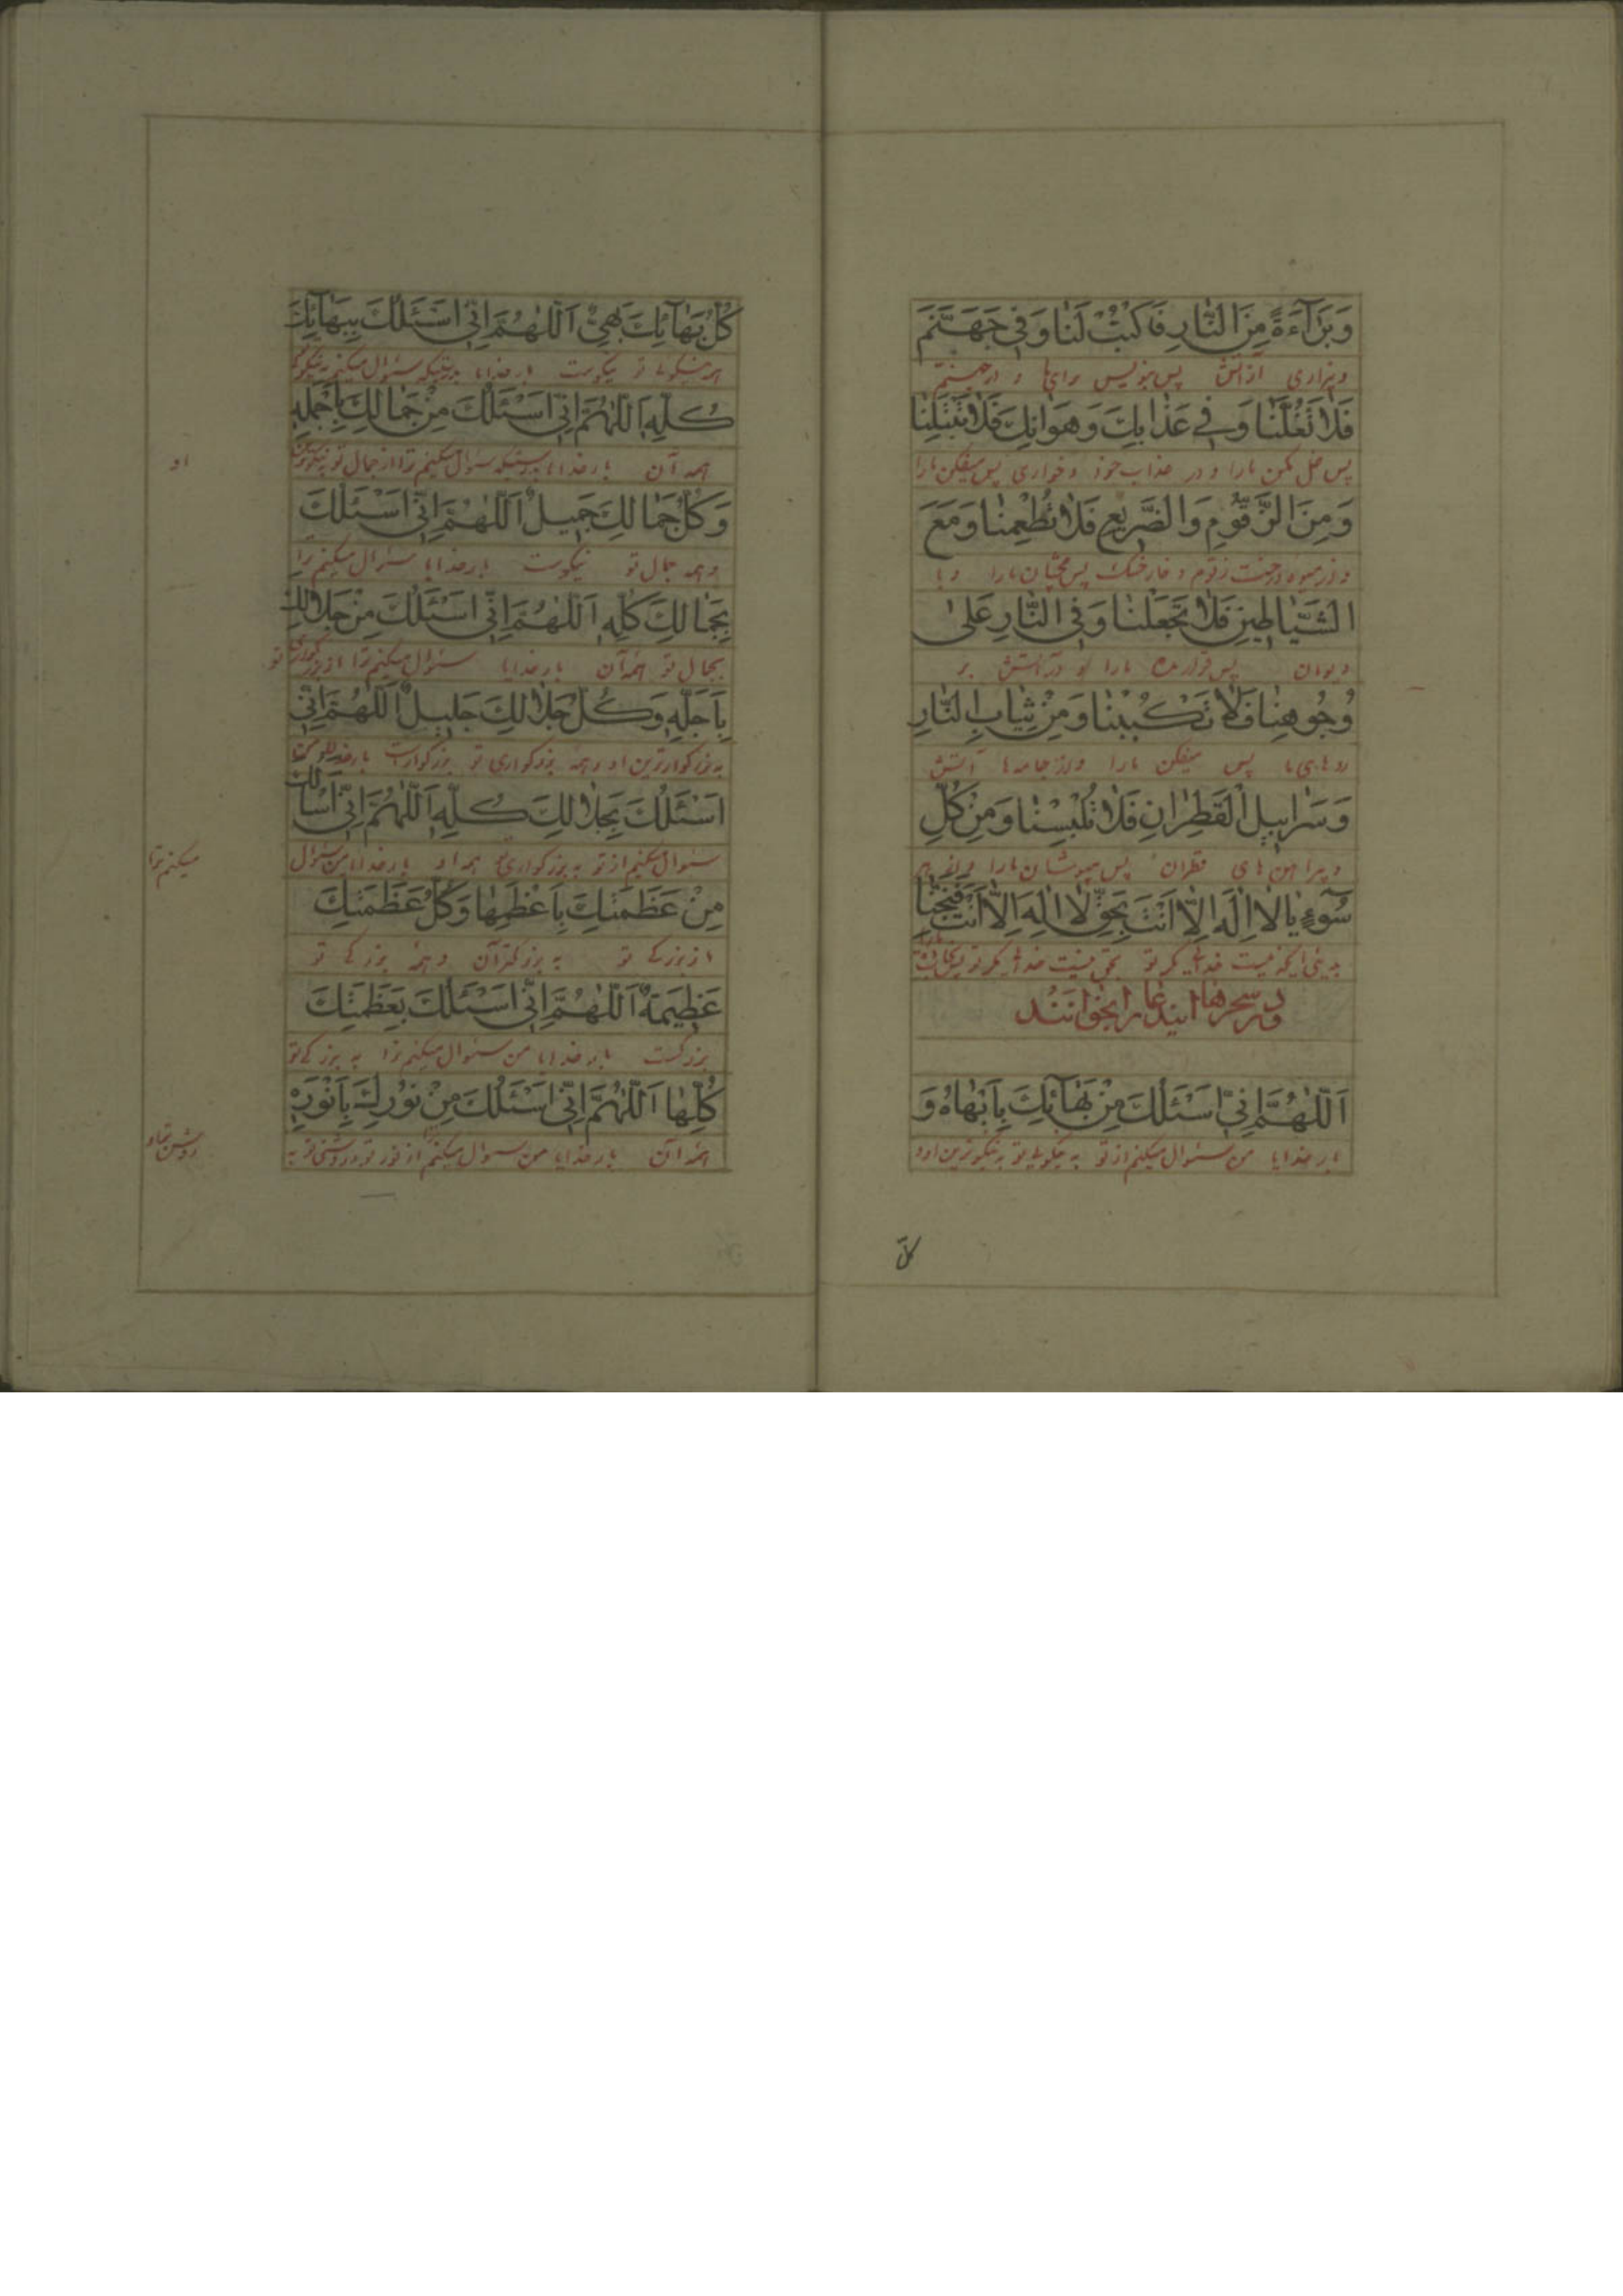 وَبَرَآءَةً مِنَ النّٰارِ فَاكْتُبْ لَنٰا وَفِى جَهَنَّمَ
وبیزاری از آتش پس بنویس برای ما و در جهنم
فَلٰا تَغُلَّنٰا وَفِے عَذٰابِكَ وَهَوٰانِكَ فَلٰا تَبْتَلِنٰا
پس غل مکن مارا و در عذاب خود و خواری پس میفکن مارا
وَمِنَ الزَّقُّومِ وَالضَّرِيعِ فَلٰا تُطْعِمنٰا وَمَعَ
و از میوه درخت زقوم و خار خشک پس مچشان مارا و با
الشَّيٰاطِينِ فَلٰا تَجْعَلْنٰا وَفِى النّٰارِ عَلىٰ
دیوان پس قرار مده مارا و در آتش بر
وُجُوهِنٰا فَلٰا تَكْبُبْنٰا وَمِنْ ثِيٰابِ النّٰارِ
روهای ما پس میفکن مارا و از جامه‌ها آتش
وَسَرٰابِيلِ الْقَطِرٰانِ فَلٰا تُلْبِسْنٰا وَمِنْ كُلِّ
و پیراهن های قطران پس مپوشان مارا و از هر
سُوٓءٍ يٰا لٰا اِلٰهَ اِلّٰا اَنْتَ بِحَقِّ لٰا اِلٰهَ اِلّٰا اَنْتَ فَنَجِّنٰا
بدیئی ایکه نیست خدائی مگر تو بحق نیست خدائی مگر تو
ودر سحرها ایندعا را بخوانند
اَللّٰهُمَّ اِنِّى اَسْئَلُكَ مِنْ بَهٰآئِكَ بِاَبْهٰاهُ وَ
بارخدایا من سئوال میکنم از تو به نیکوئی تو به نیکوترین او و
كلّ
كُلُّ بَهٰآئِكَ بَهِىٌّ اَللّٰهُمَّ اِنِّى اَسْئَلُكَ بِبَهٰآئِكَ
همه نیکوئی تو نیکوست بارخدایا بدرستیکه سئوال میکنم
كُلِّهِ اَللّٰهُمَّ اِنِّى اَسْئَلُكَ مِنْ جَمٰالِكَ بِاَجْمَلِهِ
همه آن بارخدایا بدرستیکه سئوال میکنم ترا از جمال تو نیکوترین
او
وَكُلُّ جَمٰالِكَ جَمِيلٌ اَللّٰهُمَّ اِنِّى اَسْئَلُكَ
و همه جمال تو نیکوست بارخدایا سئوال میکنم ترا
بِجَمٰالِكَ كُلِّهِ اَللّٰهُمَّ اِنِّى اَسْئَلُكَ مِنْ جَلٰالِكَ
بجمال تو همه آن بارخدایا سئوال میکنم ترا از بزرگواری تو
بِاَجَلِّهِ وَكُلُّ جَلٰالِكَ جَلِيلٌ اَللّٰهُمَّ اِنِّى
به بزرگوارترین او و همه بزرگواری تو بزرگوارست
اَسْئَلُكَ بِجَلٰالِكَ كُلِّهِ اَللّٰهُمَّ اِنِّى اَسْأَلُكَ
سئوال میکنم از تو به بزرگواری تو همه او بارخدایا من سئوال
میکنم ترا
مِنْ عَظَمَتِكَ بِاَعْظَمِهٰا وَكُلُّ عَظَمَتِكَ
از بزرگے تو به بزرگتر آن و همه بزرگی تو
عَظِيمَةٌ اَللّٰهُمَّ اِنِّى اَسْئَلُكَ بِعَظَمَتِكَ
بزرگست بارخدایا من سئوال میکنم ترا به بزرگے تو
كُلِّهٰا اَللّٰهُمَّ اِنِّى اَسْئَلُكَ مِنْ نُورِكَ بِاَنْوَرِهِ
همه آن بارخدایا من سئوال میکنم از نور تو و روشنی تو به